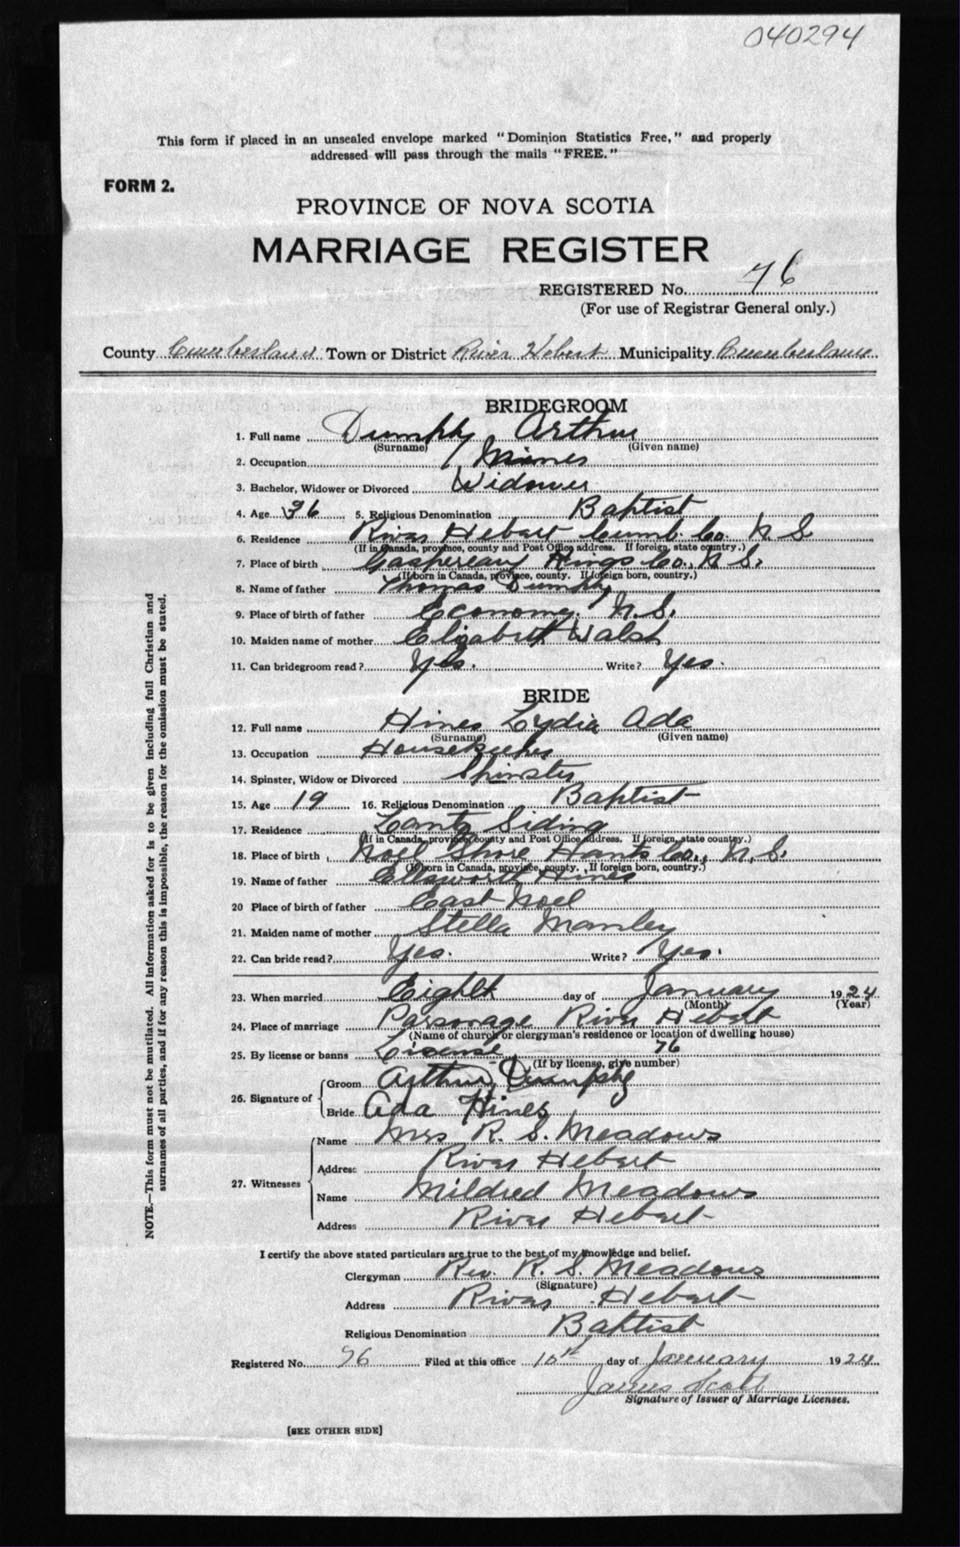 040294
This form if placed in an unsealed envelope marked "Dominion Statistics Free," and properly
addressed will pass through the mails "FREE."
FORM 2.
PROVINCE OF NOVA SCOTIA
MARRIAGE REGISTER
REGISTERED No. 76
(For use of Registrar General only.)
County Cumberland Town or District River Hebert Municipality Cumberland
BRIDEGROOM
1. Full name Dumphy Arthur
(Surname) (Given name)
2. Occupation Miner
3. Bachelor, Widower or Divorced Widower
4. Age 5. Religious Denomination Baptist
6. Residence River Hebert Cumb. Co. N. S.
(If in Canada, province, county and Post Office address. If foreign, state country.)
7. Place of birth Gaspereau Kings Co., N. S.
(If born in Canada, province, county. If foreign born, country.)
8. Name of father Thomas Dumphy
9. Place of birth of father Economy. N. S.
10. Maiden name of mother Elizabeth Walsh
11. Can bridegroom read? Yes. Write? Yes.
BRIDE
12. Full name Hines Lydia Ada
(Surname) (Given name)
13. Occupation Housekeeper
14. Spinster, Widow or Divorced Spinster
15. Age 19 16. Religious Denomination Baptist
17. Residence Lantz Siding
(If in Canada, province, county and Post Office address. If foreign, state country.)
18. Place of birth Noel Shore Hants Co., N. S.
(If born in Canada, province, county. If foreign born, country.)
19. Name of father Ellsworth Hines
20 Place of birth of father East Noel
21. Maiden name of mother Stella Manley
22. Can bride read? Yes. Write? Yes.
23. When married Eight day of January 1924
(Month) (Year)
24. Place of marriage Parsonage River Hebert
(Name of church or clergyman's residence or location of dwelling house)
25. By license or banns License 76
(If by license, give number)
26. Signature of Groom Arthur Dumphy
Bride Ada Hines
27. Witnesses Name Mrs R. S. Meadows
Address River Hebert
Name Mildred Meadows
Address River Hebert
I certify the above stated particulars are true to the best of my knowledge and belief.
Clergyman Rev. R. S. Meadows
(Signature)
Address River Hebert
Religious Denomination Baptist
Registered No. 76 Filed at this office 10th day of January 1924
James Scott
Signature of Issuer of Marriage Licenses.
[SEE OTHER SIDE]
NOTE.—This form must not be mutilated. All information asked for is to be given including full Christian and
surnames of all parties, and if for any reason this is impossible, the reason for the omission must be stated.